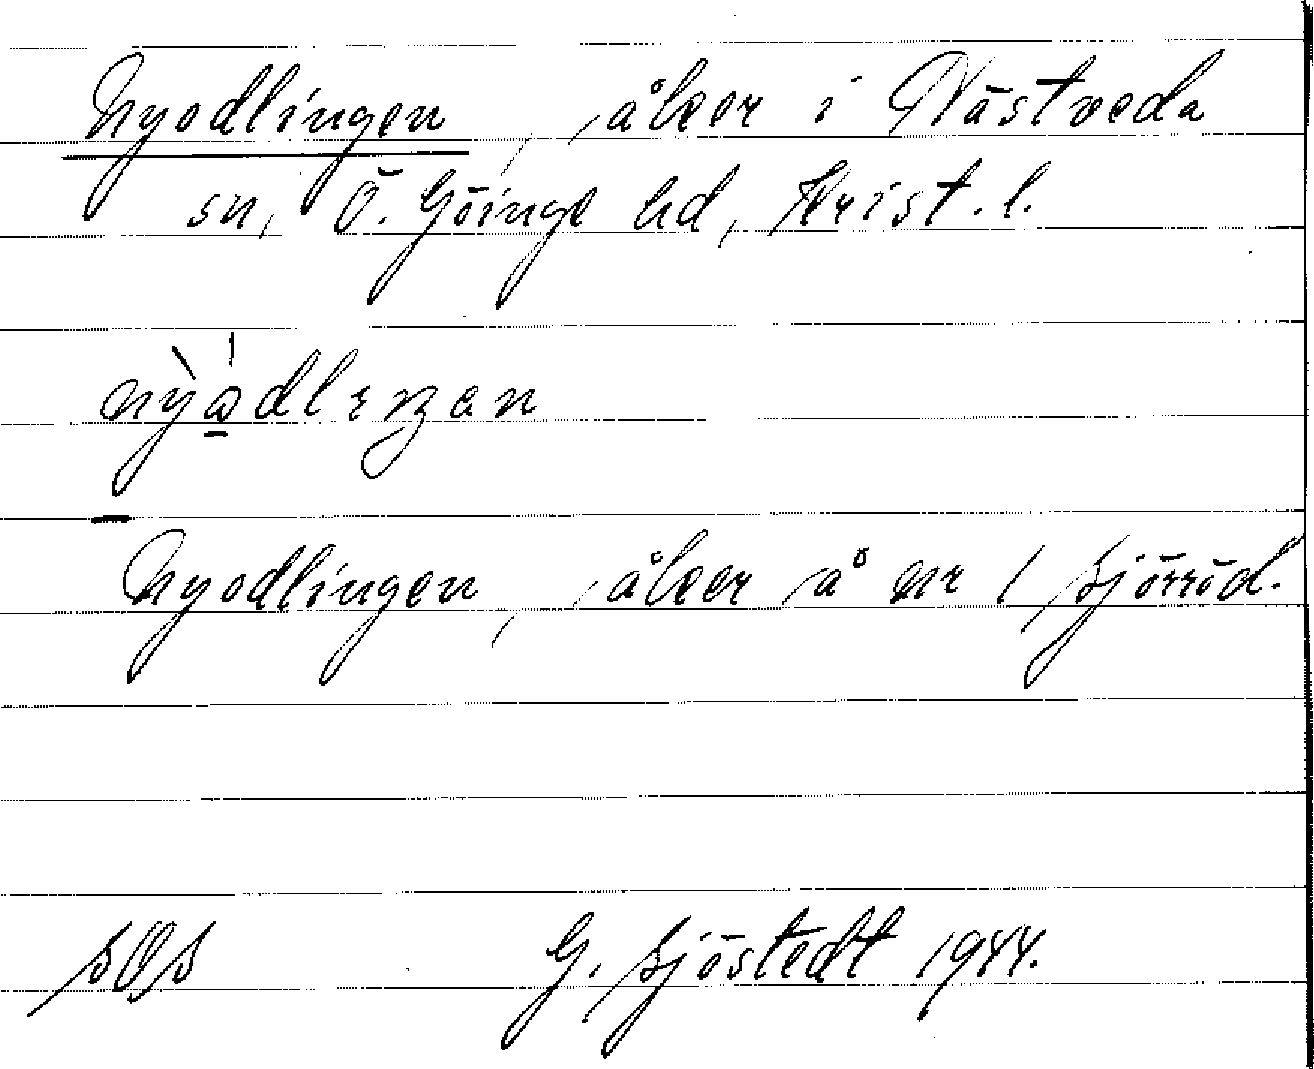 Nyodlingen, åker i Västveda
sn, Ö. Göinge hd, Krist. l.
nỳo̲dlıŋan
Nyodlingen, åker å nr 1 Sjöröd.
SOS G. Sjöstedt 1944.